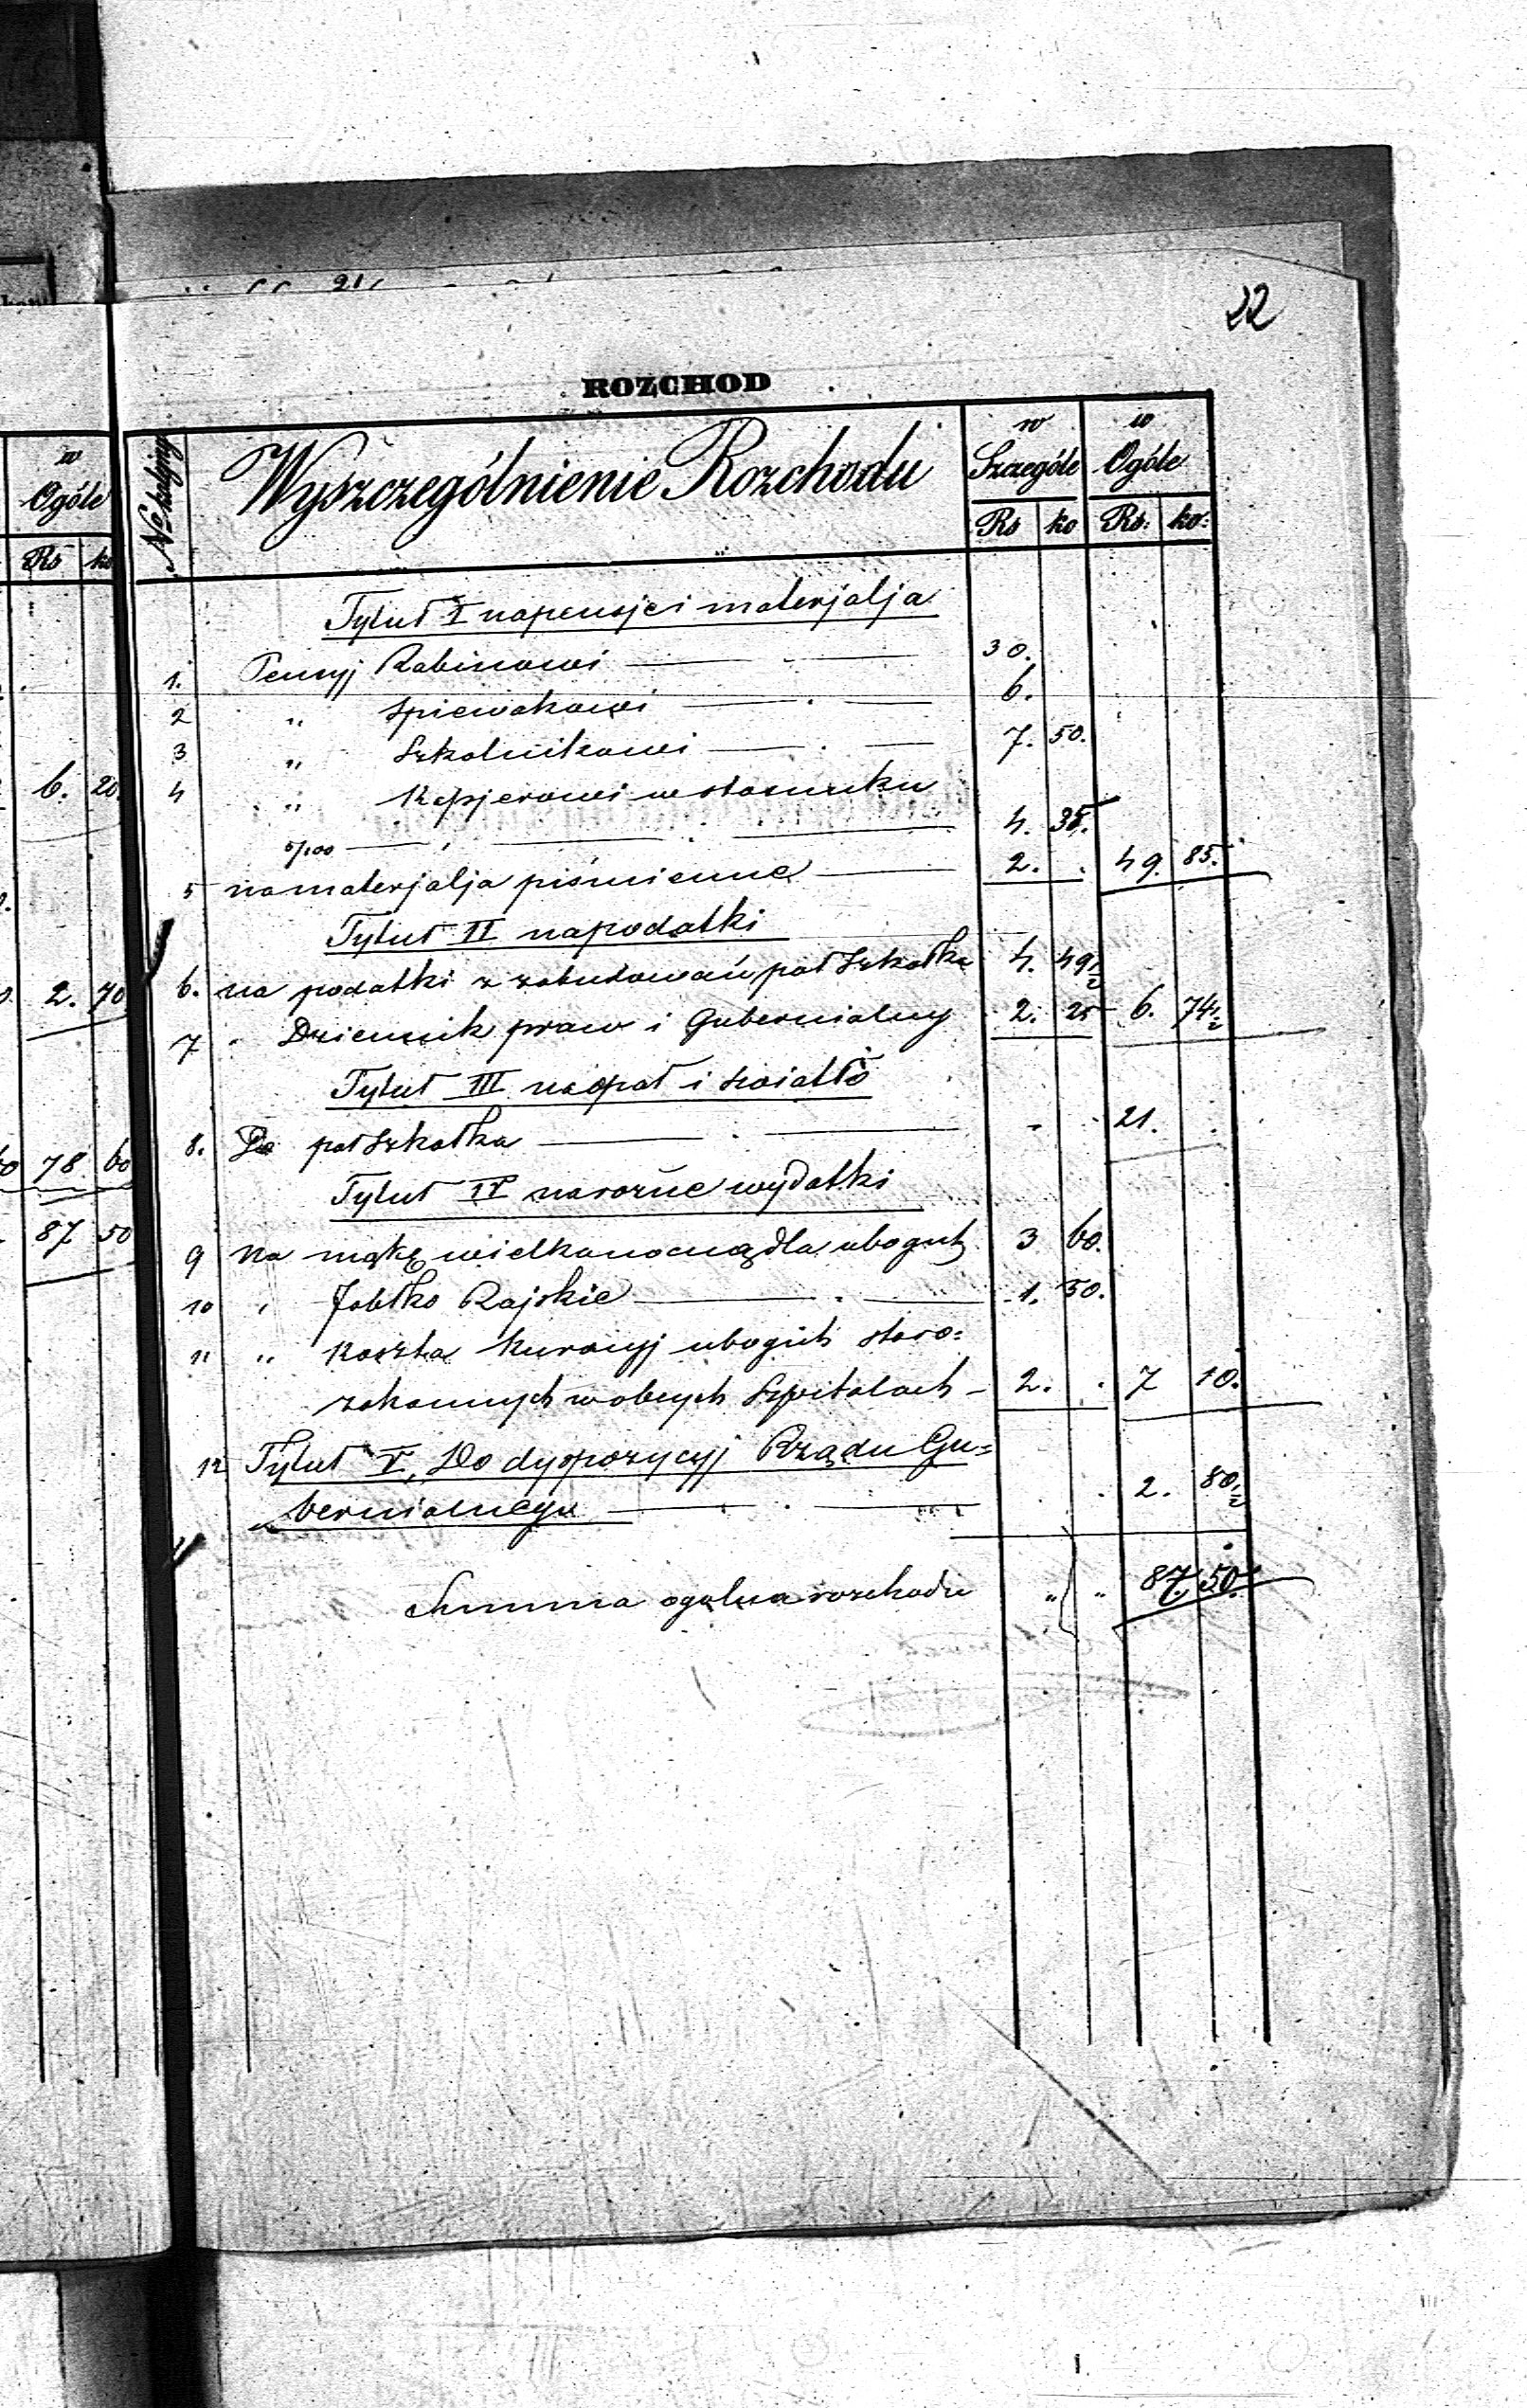 22
ROZCHOD
No kolejny Wyszczególnienie Rozchodu w Szczególe w Ogóle
Rs ko Rs: ko:
Tytuł I na pensje i materjalja
1. Pensyj Rabinowi 30.
2 " Spiewakowi 6.
3 " Szkolnikowi 7. 50.
4 " Kasjerowi w stosunku
5/100 4. 35.
5 na materjalja piśmienne 2. . 49. 85.
Tytuł II na podatki
6. na podatki z zabudowań pod Szkołką 4. 49½
7 " Dziennik praw i Gubernialny 2. 25 6. 74½
Tytuł III na opał i swiatło
8. pod Szkołka . . 21. .
Tytuł IV na rozne wydatki
9 na mąkę wielkanocną dla ubogich 3 60.
10 " Jabłko Rajskie 1. 50.
11 " Koszta kuracyj ubogich staro=
zakonnych w obcych Szpitalach – 2. . 7 10.
12 Tytuł V, Do dyspozycyj Rządu Gu=
bernialnego . 2. 80½
Summa ogolna rozchodu " " 87. 50.
w
Ogóle
Rs ko
6. 20.
2. 70
78 60
87 50